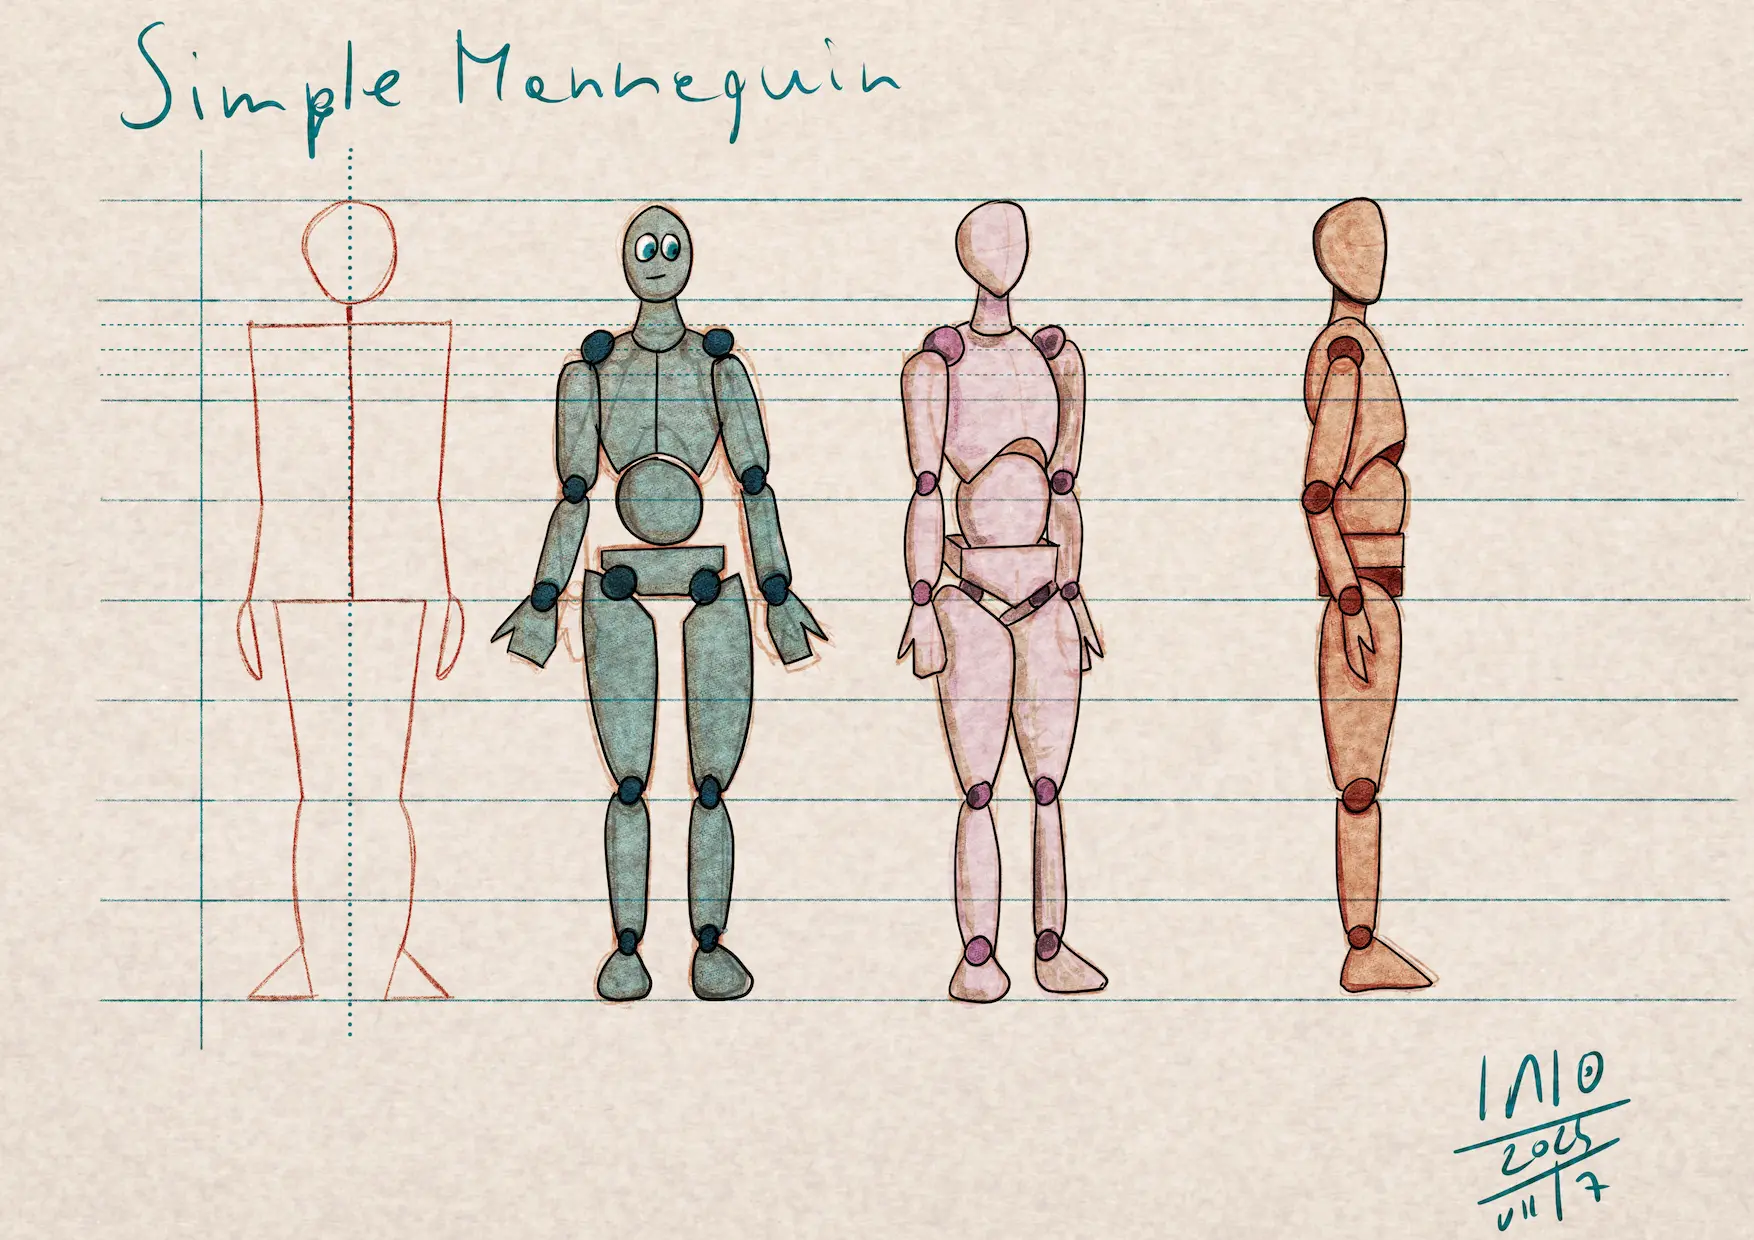 Simple Mannequin
INIO
2025
VII 7